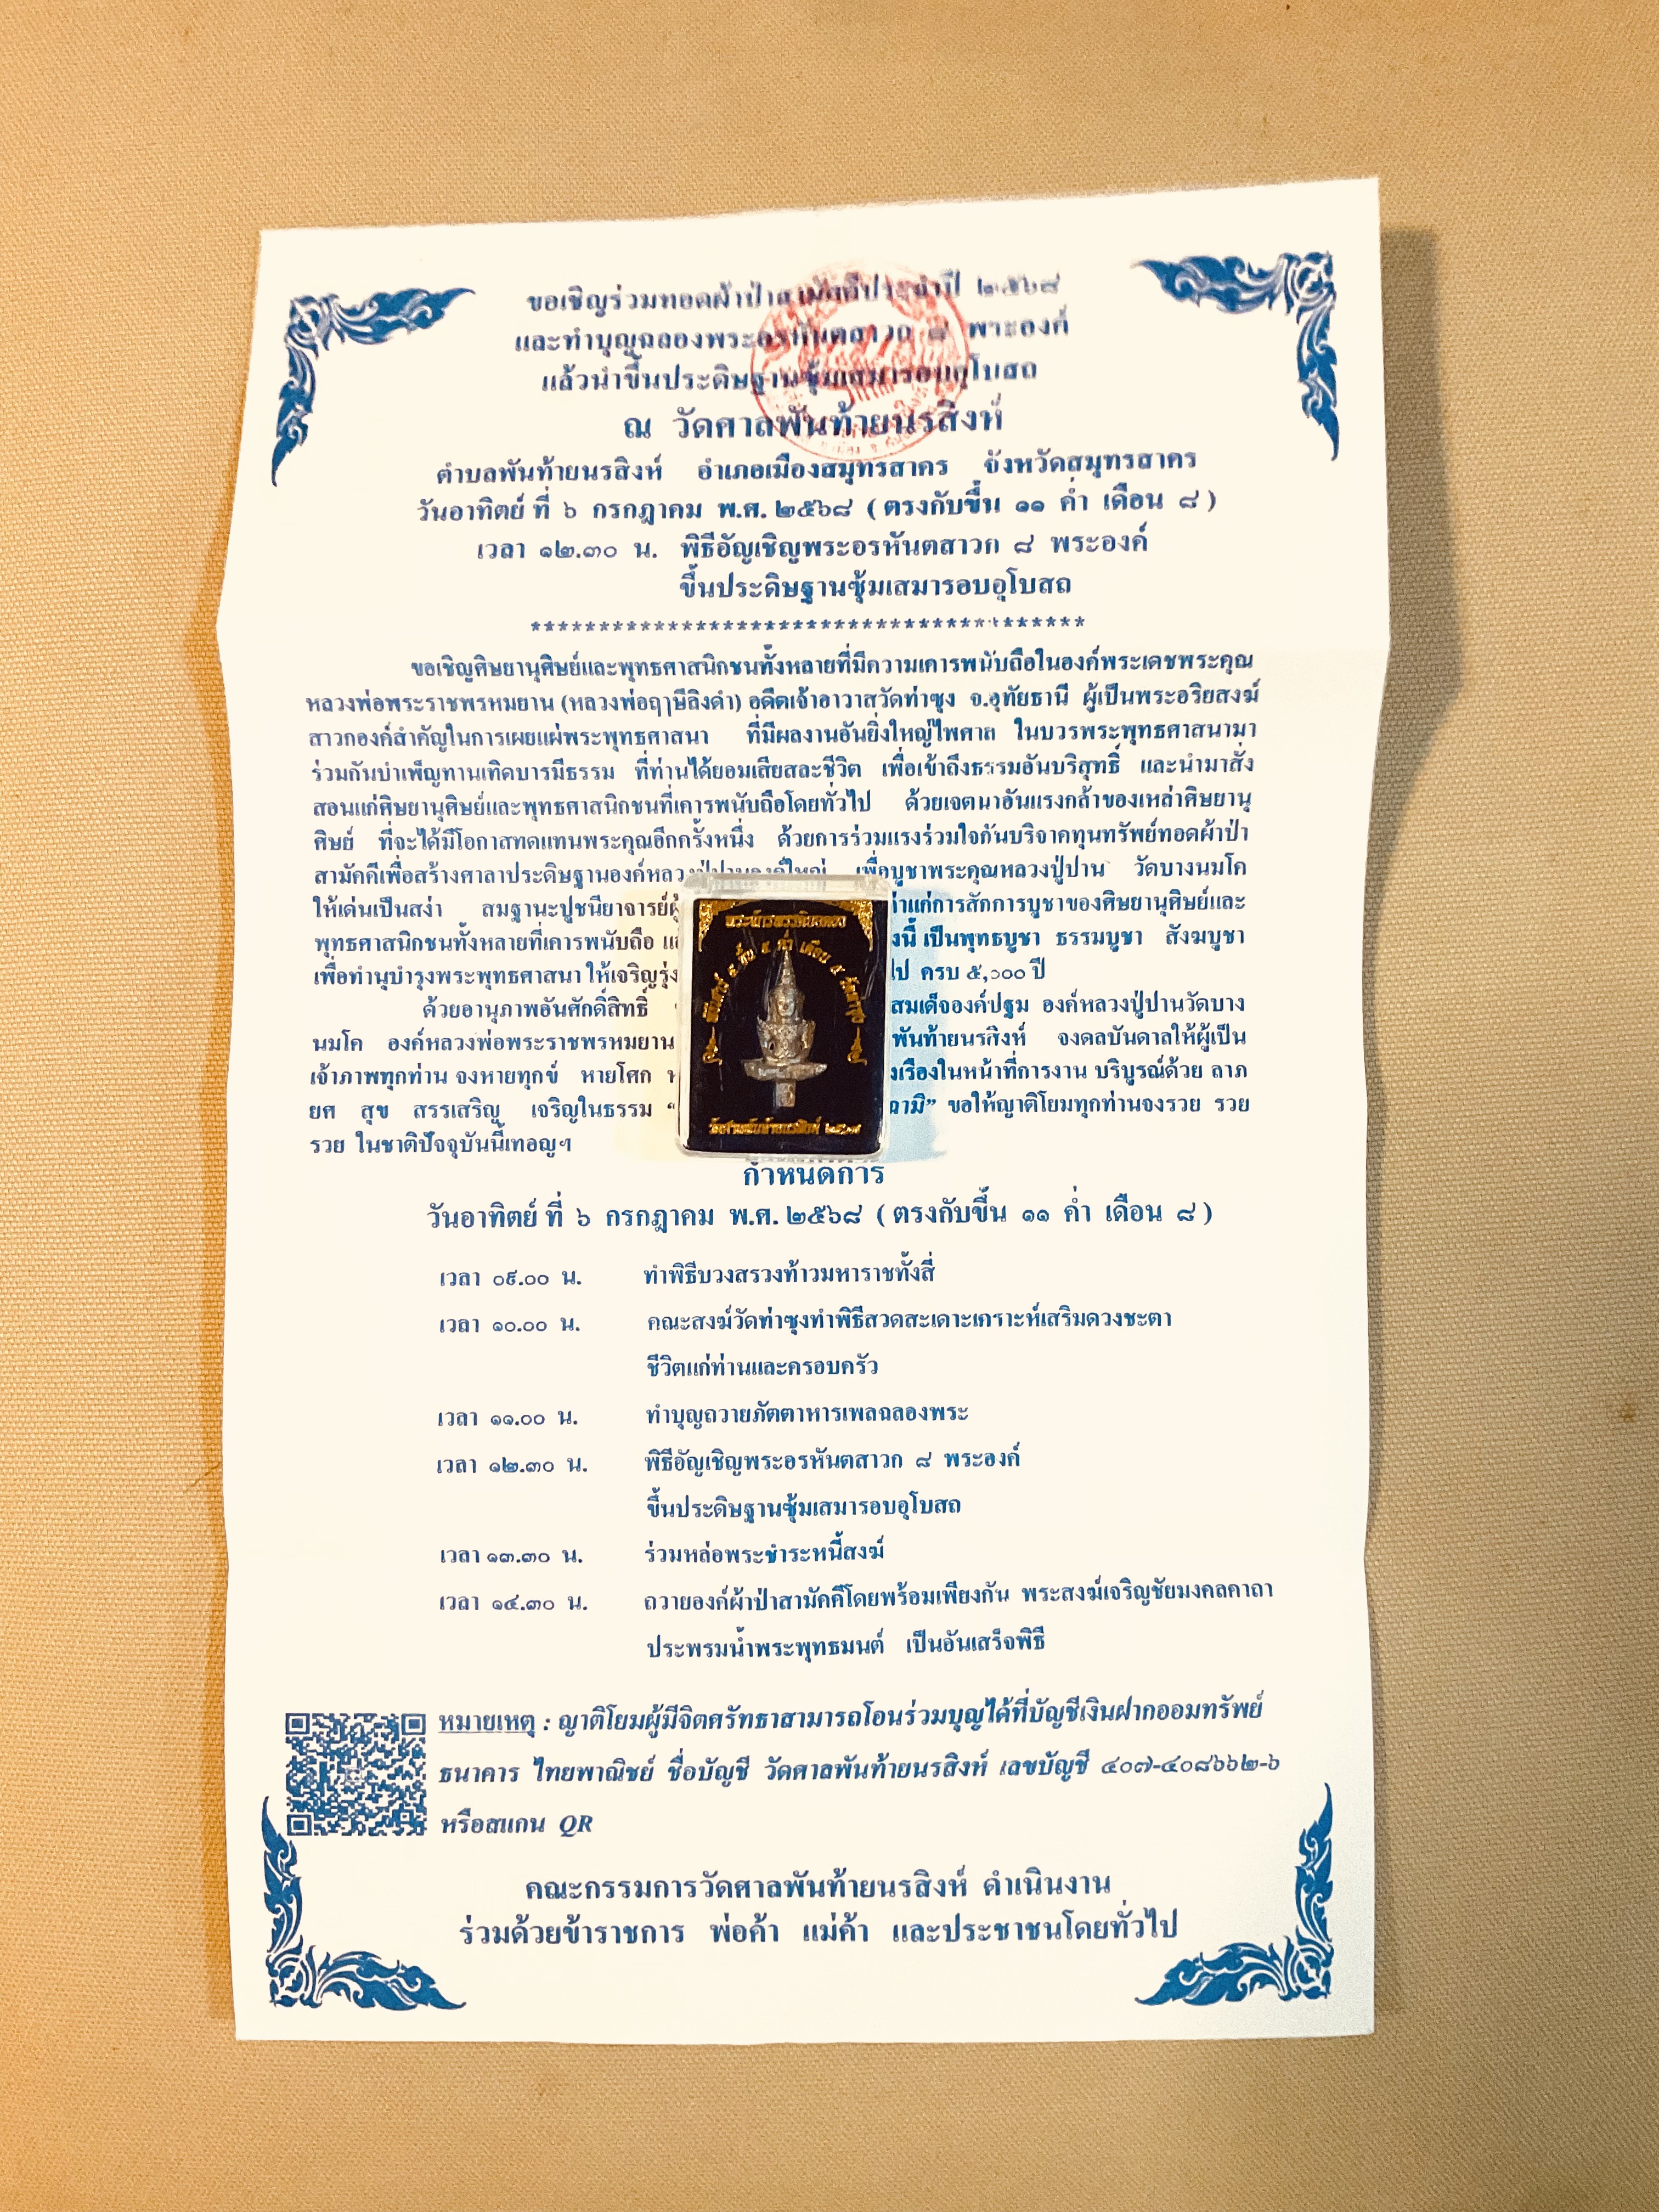 ขอเชิญร่วมทอดผ้าป่าสามัคคีประจำปี ๒๕๖๘
และทำบุญฉลองพระอรหันตสาวก ๘ พระองค์
แล้วนำขึ้นประดิษฐานซุ้มเสมารอบอุโบสถ
ณ วัดศาลพันท้ายนรสิงห์
ตำบลพันท้ายนรสิงห์ อำเภอเมืองสมุทรสาคร จังหวัดสมุทรสาคร
วันอาทิตย์ ที่ ๖ กรกฎาคม พ.ศ. ๒๕๖๘ ( ตรงกับขึ้น ๑๑ ค่ำ เดือน ๘ )
เวลา ๑๒.๓๐ น. พิธีอัญเชิญพระอรหันตสาวก ๘ พระองค์
ขึ้นประดิษฐานซุ้มเสมารอบอุโบสถ
****************************************
ขอเชิญศิษยานุศิษย์และพุทธศาสนิกชนทั้งหลายที่มีความเคารพนับถือในองค์พระเดชพระคุณ
หลวงพ่อพระราชพรหมยาน (หลวงพ่อฤๅษีลิงดำ) อดีตเจ้าอาวาสวัดท่าซุง จ.อุทัยธานี ผู้เป็นพระอริยสงฆ์
สาวกองค์สำคัญในการเผยแผ่พระพุทธศาสนา ที่มีผลงานอันยิ่งใหญ่ไพศาล ในบวรพระพุทธศาสนามา
ร่วมกันบำเพ็ญทานเทิดบารมีธรรม ที่ท่านได้ยอมเสียสละชีวิต เพื่อเข้าถึงธรรมอันบริสุทธิ์ และนำมาสั่ง
สอนแก่ศิษยานุศิษย์และพุทธศาสนิกชนที่เคารพนับถือโดยทั่วไป ด้วยเจตนาอันแรงกล้าของเหล่าศิษยานุ
ศิษย์ ที่จะได้มีโอกาสทดแทนพระคุณอีกครั้งหนึ่ง ด้วยการร่วมแรงร่วมใจกันบริจาคทุนทรัพย์ทอดผ้าป่า
สามัคคีเพื่อสร้างศาลาประดิษฐานองค์หลวงปู่ปานองค์ใหญ่ เพื่อบูชาพระคุณหลวงปู่ปาน วัดบางนมโค
ให้เด่นเป็นสง่า สมฐานะปูชนียาจารย์ แก่การสักการบูชาของศิษยานุศิษย์และ
พุทธศาสนิกชนทั้งหลายที่เคารพนับถือ นี้ เป็นพุทธบูชา ธรรมบูชา สังฆบูชา
เพื่อทำนุบำรุงพระพุทธศาสนา ให้เจริญรุ่ง ไป ครบ ๕,๐๐๐ ปี
ด้วยอานุภาพอันศักดิ์สิทธิ์ สมเด็จองค์ปฐม องค์หลวงปู่ปานวัดบาง
นมโค องค์หลวงพ่อพระราชพรหมยาน พันท้ายนรสิงห์ จงดลบันดาลให้ผู้เป็น
เจ้าภาพทุกท่าน จงหายทุกข์ หายโศก เรืองในหน้าที่การงาน บริบูรณ์ด้วย ลาภ
ยศ สุข สรรเสริญ เจริญในธรรม “ ถามิ” ขอให้ญาติโยมทุกท่านจงรวย รวย
รวย ในชาติปัจจุบันนี้เทอญฯ
วัดศาลพันท้ายนรสิงห์ ๒๕๖๗
กำหนดการ
วันอาทิตย์ ที่ ๖ กรกฎาคม พ.ศ. ๒๕๖๘ ( ตรงกับขึ้น ๑๑ ค่ำ เดือน ๘ )
เวลา ๐๙.๐๐ น. ทำพิธีบวงสรวงท้าวมหาราชทั้งสี่
เวลา ๑๐.๐๐ น. คณะสงฆ์วัดท่าซุงทำพิธีสวดสะเดาะเคราะห์เสริมดวงชะตา
ชีวิตแก่ท่านและครอบครัว
เวลา ๑๑.๐๐ น. ทำบุญถวายภัตตาหารเพลฉลองพระ
เวลา ๑๒.๓๐ น. พิธีอัญเชิญพระอรหันตสาวก ๘ พระองค์
ขึ้นประดิษฐานซุ้มเสมารอบอุโบสถ
เวลา ๑๓.๓๐ น. ร่วมหล่อพระชำระหนี้สงฆ์
เวลา ๑๔.๓๐ น. ถวายองค์ผ้าป่าสามัคคีโดยพร้อมเพียงกัน พระสงฆ์เจริญชัยมงคลคาถา
ประพรมน้ำพระพุทธมนต์ เป็นอันเสร็จพิธี
หมายเหตุ : ญาติโยมผู้มีจิตศรัทธาสามารถโอนร่วมบุญได้ที่บัญชีเงินฝากออมทรัพย์
ธนาคาร ไทยพาณิชย์ ชื่อบัญชี วัดศาลพันท้ายนรสิงห์ เลขบัญชี ๔๐๗-๔๐๘๖๖๒-๖
หรือสแกน QR
คณะกรรมการวัดศาลพันท้ายนรสิงห์ ดำเนินงาน
ร่วมด้วยข้าราชการ พ่อค้า แม่ค้า และประชาชนโดยทั่วไป